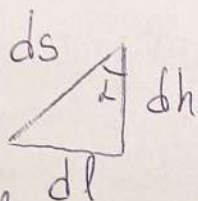 ds
α dh
dl